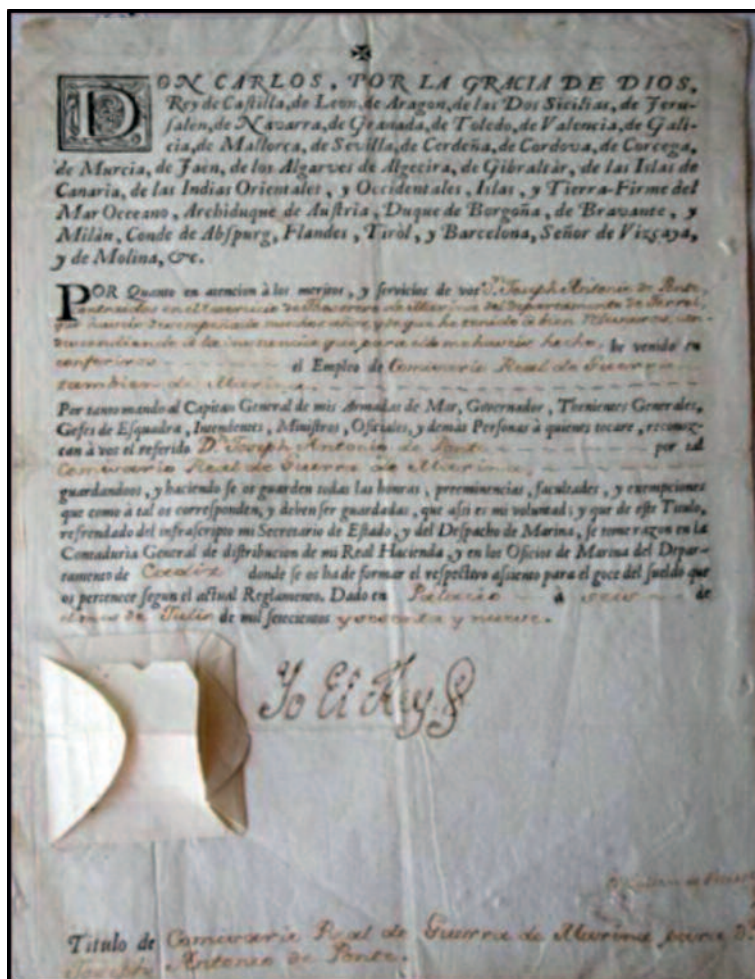 DON CARLOS, POR LA GRACIA DE DIOS,
Rey de Castilla, de Leon, de Aragon, de las Dos Sicilias, de Jeru-
salén, de Navarra, de Granada, de Toledo, de Valencia, de Gali-
cia, de Mallorca, de Sevilla, de Cerdeña, de Cordova, de Corcega,
de Murcia, de Jaen, de los Algarves de Algecira, de Gibraltár, de las Islas de
Canaria, de las Indias Orientales, y Occidentales, Islas, y Tierra-Firme del
Mar Occeano, Archiduque de Austria, Duque de Borgoña, de Bravante, y
Milán, Conde de Abspurg, Flandes, Tiról, y Barcelona, Señor de Vizcaya,
y de Molina, &c.
POR Quanto en atencion à los meritos, y servicios de vos D. Joseph Antonio de Ponte,
en el de Thesorero de Marina del Departamento de Ferrol,
que haveis desempeñado muchos años, y que he tenido à bien
à la instancia que para ello me haveis hecho, he venido en
conferiros el Empleo de Comisario Real de Guerra
tambien de Marina
Por tanto mando al Capitan General de mis Armadas de Mar, Governador, Thenientes Generales,
Gefes de Esquadra, Intendentes, Ministros, Oficiales, y demás Personas à quienes tocare, reconoz-
can à vos el referido D. Joseph Antonio de Ponte por tal
Comisario Real de Guerra de Marina
guardandoos, y haciendo se os guarden todas las honras, preeminencias, facultades, y exempciones
que como à tal os corresponden, y deben ser guardadas, que assi es mi voluntad; y que de este Titulo,
refrendado del infrascripto mi Secretario de Estado, y del Despacho de Marina, se tome razon en la
Contaduria General de distribucion de mi Real Hacienda, y en los Oficios de Marina del Depar-
tamento de Caadiz donde se os ha de formar el respectivo assiento para el goce del sueldo que
os pertenece segun el actual Reglamento. Dado en Palacio à seis de
de Julio de mil setecientos y ochenta y nueve.
Yo El Rey
Titulo de Comisario Real de Guerra de Marina para D.
Joseph Antonio de Ponte.